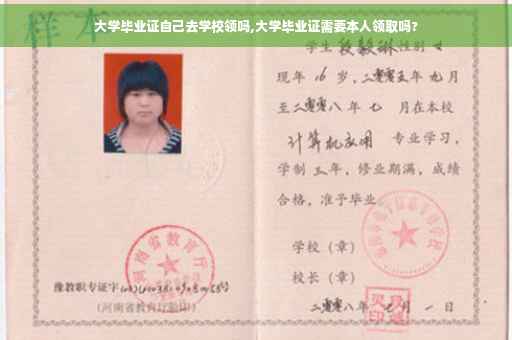 大学毕业证自己去学校领吗,大学毕业证需要本人领取吗?
样本
学生 段毅琳 性别 女
现年 16 岁,二零零五年 九月
至二零零八年 七 月在本校
计算机应用 专业学习,
学制 三年,修业期满,成绩
合格,准予毕业
学校(章)
校长(章)
二零零八年 月 一 日
河南省教育厅
豫教职专证字
(河南省教育厅验印)